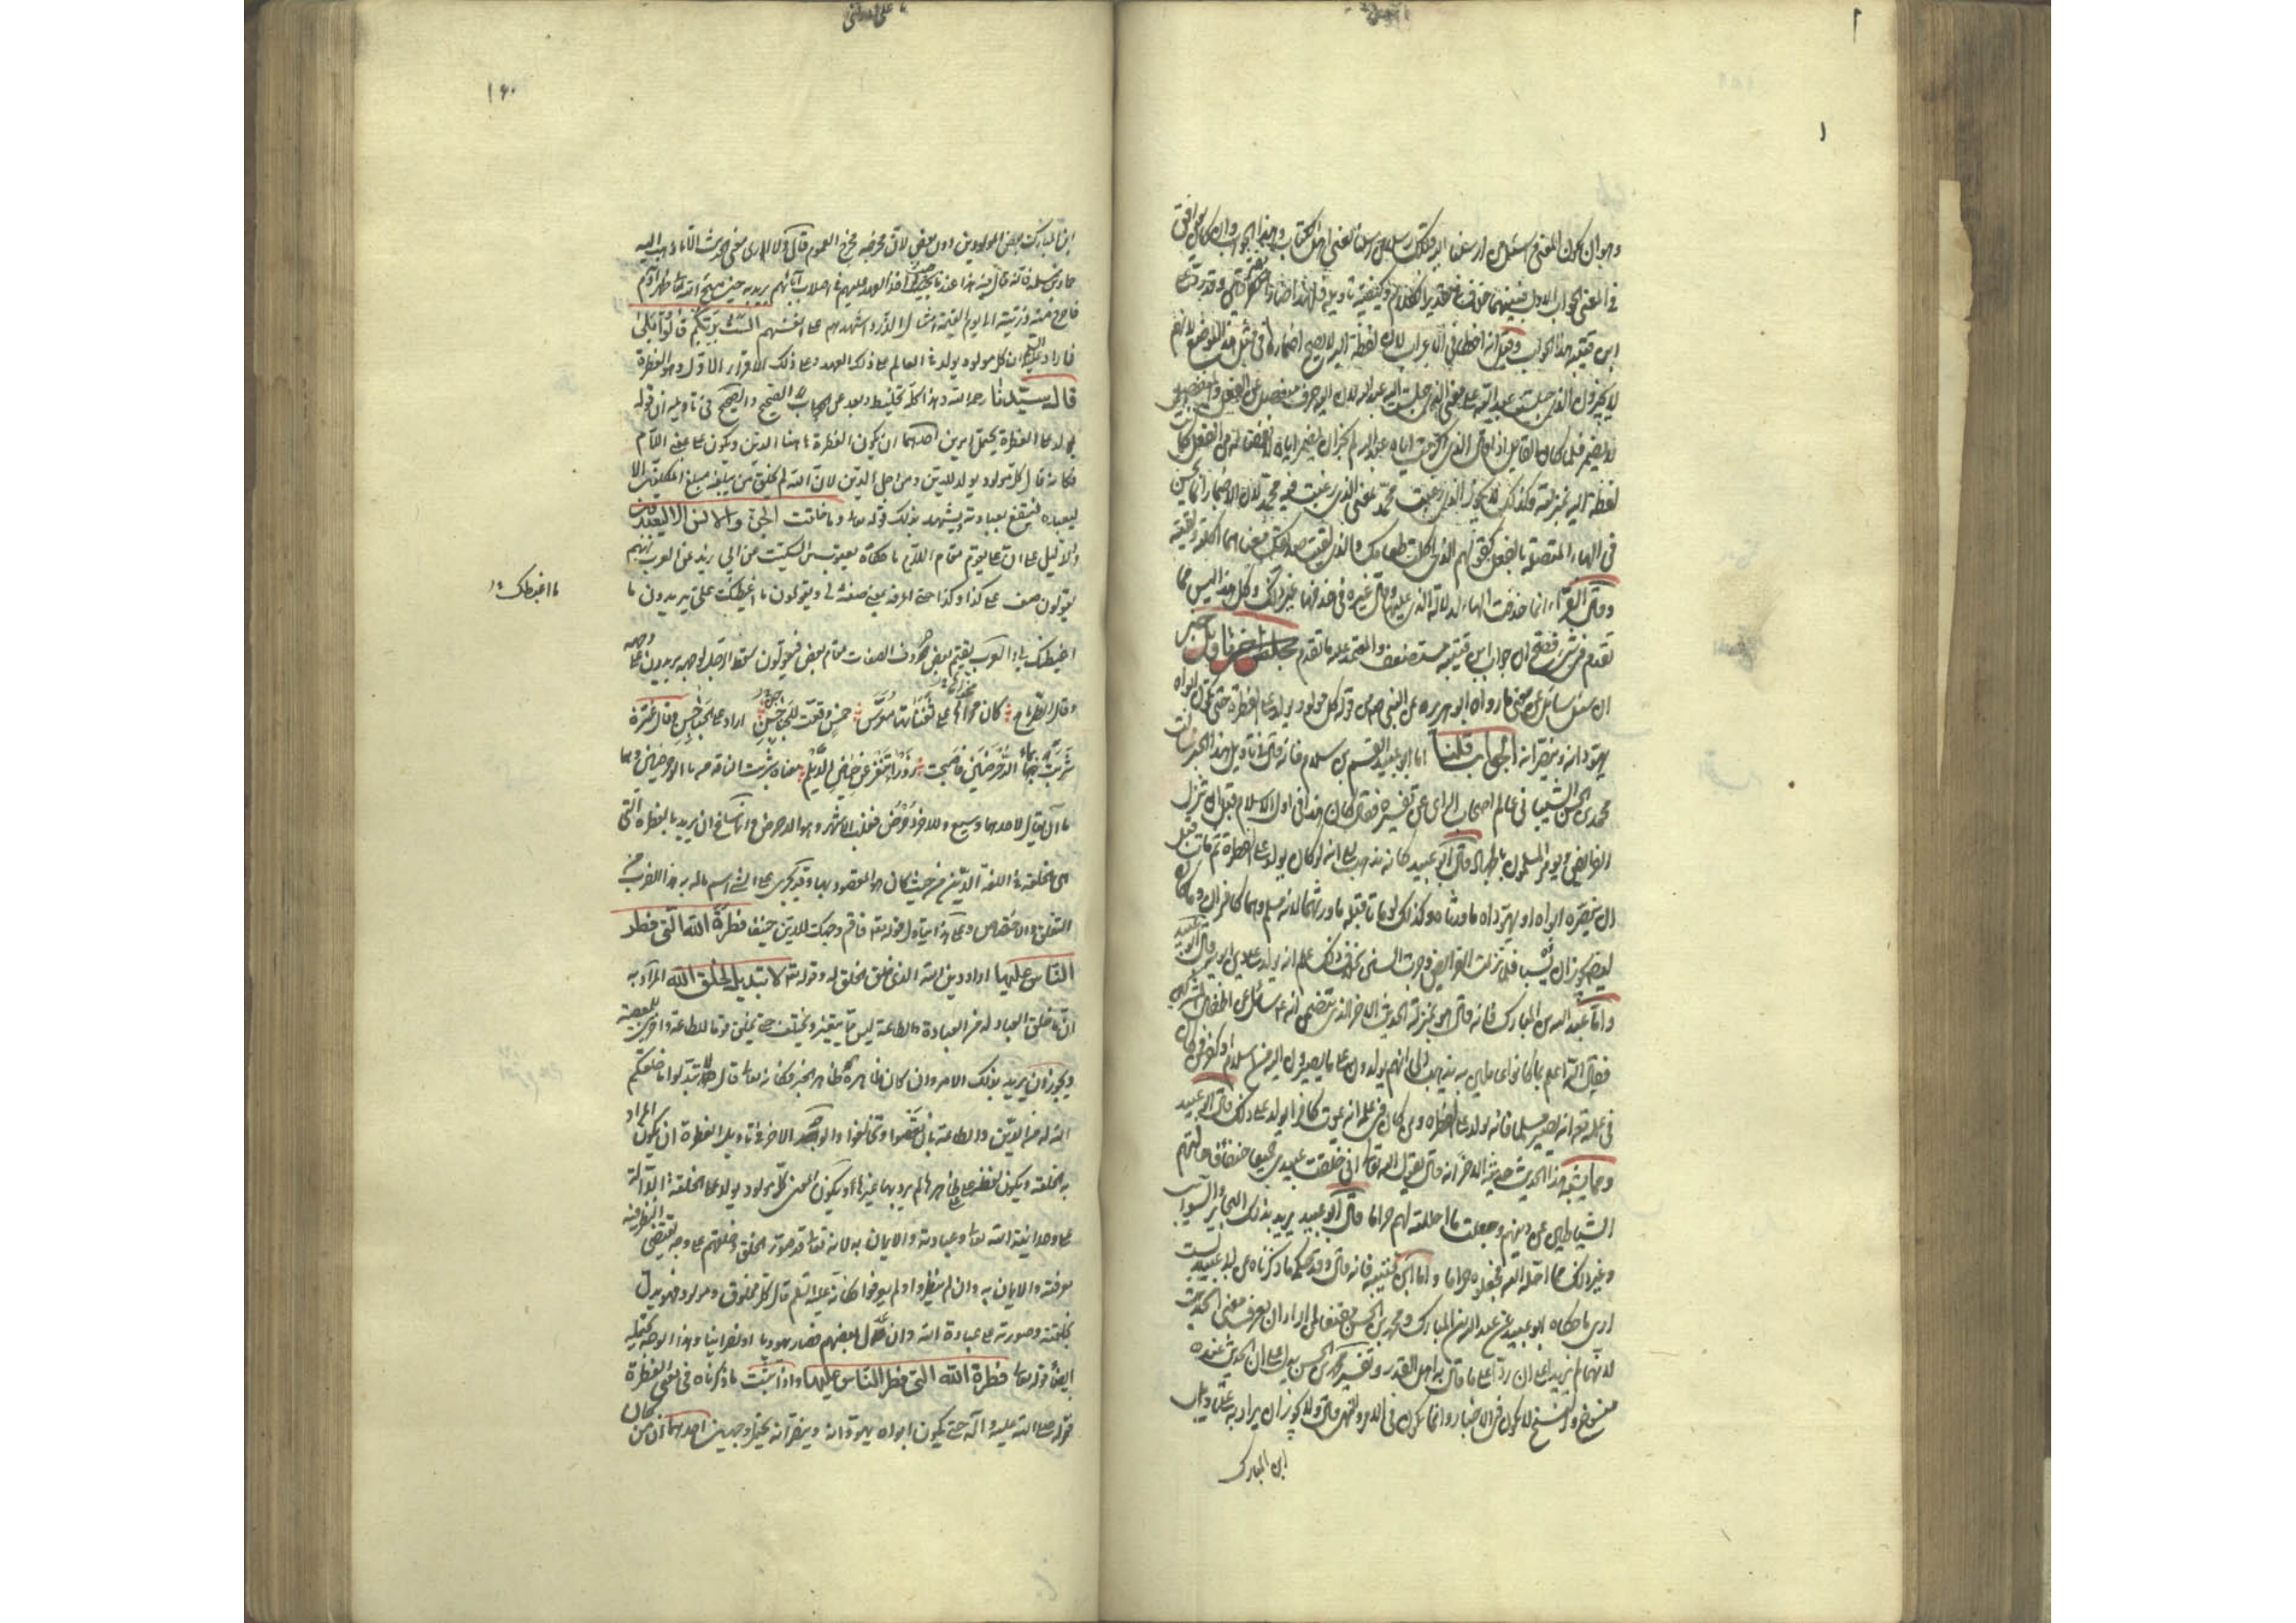 وهو ان يكون المعنى فسئل من ارسلنا اليه قبلك رسلا من رسلنا يعنى اهل الكتاب وهذا الجواب وان كان يوافق
فى المعنى الجواب الاول فبينهما خلاف فى تقدير الكلام وكيفية تاويله وقد رد على
ابن قتيبة هذا الجواب وقيل انه اخطأ فى الاعراب لان لفظة اليه لا يصح اضمارها فى مثل هذا الموضع لانهم
لا يجيزون الذى جلست عبد الله على معنى الذى جلست اليه عبد الله لان اليه حرف منفصل عن الفعل والمنفصل
لا يضمر فلما كان القايل اذا قال الذى اكرمت اياه عبد الله لم يجز ان يضمر اياه لانفصاله من الفعل كما
لفظة اليه بمنزلته وكذلك لا يجوز الذى رغبت محمد بمعنى الذى رغبت فيه محمد لان الاضمار انما يحسن
فى الهاء المتصلة بالفعل كقولهم الذى اكلت طعامك والذى لقيت صديقك معناهما اكلته ولقيته
وقال الفراء انما حذفت الهاء لدلالة الذى عليها وقال غيره فى حذفها غير ذلك وكل هذا ليس مما
تقدم فى شئ فصح ان جواب ابن قتيبة مستضعف والمعتمد على ما تقدم مجلس اخر تاويل خبر
ان سئل سائل عن معنى ما رواه ابو هريرة عن النبى ص من قوله كل مولود يولد على الفطرة حتى يكون ابواه
يهودانه وينصرانه الجواب قلنا اما ابو عبيد القسم بن سلام فانه قال فى تاويل هذا الخبر سالت
محمد بن الحسن الشيبانى عالم اصحاب الراى عن تفسيره فقال كان هذا فى اول الاسلام قبل ان تنزل
الفرايض ويومر المسلمون بالجهاد قال ابو عبيد كانه يذهب الى انه لو كان يولد على الفطرة ثم مات قبل
ان ينصره ابواه او يهوداه ما ورثاه وكذلك لو ماتا قبله ما ورثهما لانه مسلم وهما كافران وما كان
ايضا يجوز ان يسبا فلما نزلت الفرايض وجرت السنن بخلاف ذلك علم انه يولد على دين ابويه قال ابو عبيد
واما عبد الله بن المبارك فانه قال هو بمنزلة الحديث الاخر الذى يتضمن انه ع سئل عن اطفال المشركين
فقال الله اعلم بما كانوا عاملين به يذهب الى انهم يولدون على ما يصيرون اليه من اسلام او كفر فمن كان
فى علمه تع انه يصير مسلما فانه يولد على الفطرة ومن كان فى علمه انه يموت كافرا يولد على ذلك قال ابو عبيد
ومما يشبه هذا الحديث حديثه الاخر انه قال يقول الله تعالى انى خلقت عبيدى جميعا حنفاء فاجتالتهم
الشياطين عن دينهم وجعلت ما احللته لهم حراما قال ابو عبيد يريد بذلك البحاير والسوايب
وغير ذلك مما احله الله فجعلوه حراما واما ابن قتيبة فانه قال وقد حكى ما ذكرناه عن ابى عبيد لست
ارى ما حكاه ابو عبيد عن عبد الله بن المبارك ومحمد بن الحسن مقنعا لمن اراد ان يعرف معنى الحديث
لانهما لم يزيدا على ان ردا على ما قال به اهل القدر وتفسير محمد بن الحسن يدل على ان الحديث عنده
منسوخ والنسخ لا يكون فى الاخبار وانما يكون فى الامر والنهى قال ولا يجوز ان يراد به على تاويل
ابن المبارك
١٦٠
ابن المبارك بعض المولودين دون بعض لان مخرجه مخرج العموم قال ولا ارى معنى الحديث الا ما ذهب اليه
حماد بن سلمة فانه قال فيه هذا عندنا حيث اخذ العهد عليهم فى اصلاب آبائهم يريد به حين مسح الله تعالى ظهر آدم
فاخرج منه ذريته الى يوم القيمة امثال الذر واشهدهم على انفسهم الست بربكم قالوا بلى
فاراد عليه السلم ان كل مولود يولد فى العالم على ذلك العهد وعلى ذلك الاقرار الاول وهو الفطرة
قال سيدنا رحمه الله وهذا كله تخليط وبعد عن الجواب الصحيح والصحيح فى تاويله ان قوله
يولد على الفطرة يحتمل امرين احدهما ان يكون الفطرة هاهنا الدين ويكون على بمعنى اللام
فكانه قال كل مولود يولد للدين ومن اجل الدين لان الله لم يخلق من يبلغه مبلغ المكلفين الا
ليعبده فينتفع بعبادته يشهد بذلك قوله تعالى وما خلقت الجن والانس الا ليعبدون
والدليل على ان على يقوم مقام اللام ما حكاه يعقوب بن السكيت عن ابى زيد عن العرب انهم
يقولون صف على كذا وكذا حتى اعرفه بمعنى صفه لى ويقولون ما اغيظك على يريدون ما
ما اغبطك
اغيظك لى والعرب تقيم بعض حروف الصفات مقام بعض فيقولون سقط الرجل لوجهه يريدون على وجهه
وقال الطرماح كان مخواها على ثفناتها معرس خمس وقعت للجناجن اراد على الجناجن وقال عنترة
شربت بماء الدحرضين فاصبحت زوراء تنفر عن حياض الديلم معناه شربت الناقة من ماء الدحرضين وهما
ماآن يقال لاحدهما وسيع وللاخر دحرض فغلب الاشهر وهو الدحرض وانما ساغ ان يريد بالفطرة التى
هى الخلقة فى اللغة الدين من حيث كان هو المقصود بها وقد يجرى على الشئ اسم ماله به هذا الضرب من
التعلق والاختصاص وعلى هذا يتاول قوله تعالى فاقم وجهك للدين حنيفا فطرة الله التى فطر
الناس عليها اراد دين الله الذى خلق الخلق له وقوله تعالى لا تبديل لخلق الله المراد به
ان ما خلق العباد له من العبادة والطاعة ليس مما يتغير ويختلف حتى يخلق قوما للطاعة واخرين للمعصية
ويجوز ان يريد بذلك الامر وان كان ظاهره ظاهر الخبر فكانه تعالى قال لا تبدلوا ما خلقكم
الله له من الدين والطاعة بان تعصوا وتخالفوا والوجه الاخر فى تاويل الفطرة ان يكون المراد
به الخلقة ويكون لفظة على على ظاهرها لم يرد بها غيرها ويكون المعنى كل مولود يولد على الخلقة الدالة
على وحدانية الله تعالى وعبادته والايمان به لانه تعالى قد صور الخلق وخلقهم على وجه يقتضى النظر فيه
معرفته والايمان به وان لم ينظروا ولم يعرفوا فكانه عليه السلم قال كل مخلوق ومولود فهو يدل
بخلقته وصورته على عبادة الله وان عدل بعضهم فصار يهوديا او نصرانيا وهذا الوجه يحتمله
ايضا قوله تعالى فطرة الله التى فطر الناس عليها واذا ثبت ما ذكرناه فى معنى الفطرة
قوله صلى الله عليه وآله حتى يكون ابواه يهودانه وينصرانه يحتمل وجهين احدهما ان من كان